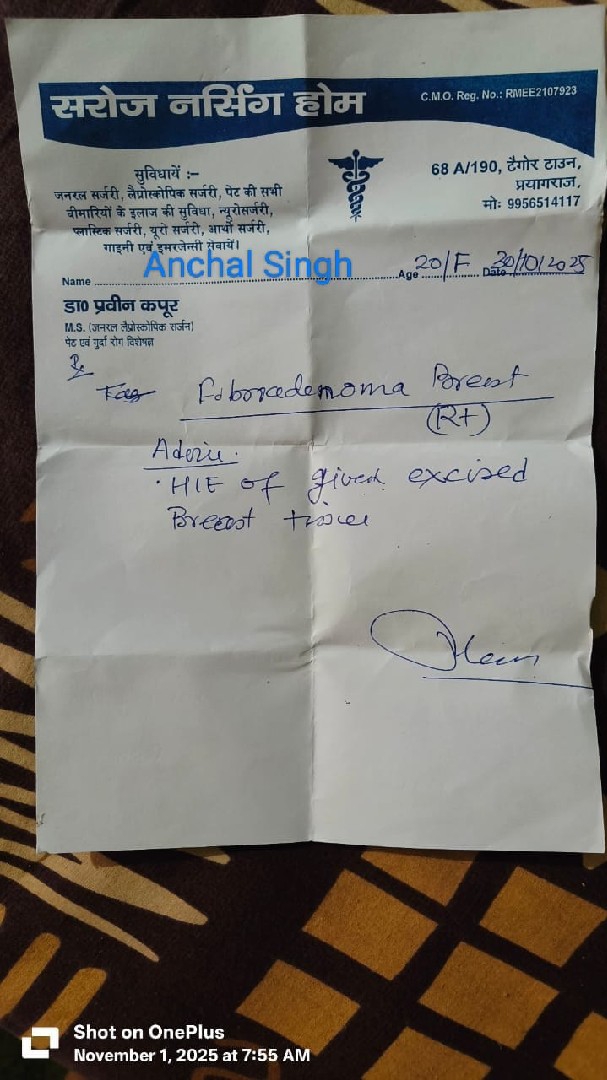 सरोज नर्सिंग होम
C.M.O. Reg. No.: RMEE2107923
सुविधायें :–
जनरल सर्जरी, लैप्रोस्कोपिक सर्जरी, पेट की सभी
बीमारियों के इलाज की सुविधा, न्युरोसर्जरी,
प्लास्टिक सर्जरी, यूरो सर्जरी, आर्थो सर्जरी,
गाइनी एवं इमरजेन्सी सेवायें।
68 A/190, टैगोर टाउन,
प्रयागराज.
मोः 9956514117
Name Anchal Singh Age 20/F Date 30/10/2025
डा0 प्रवीन कपूर
M.S. (जनरल लैप्रोस्कोपिक सर्जन)
पेट एवं गुर्दा रोग विशेषज्ञ
Rx
Breast
(Rt)
HIE of given excised
Breast
Shot on OnePlus
November 1, 2025 at 7:55 AM